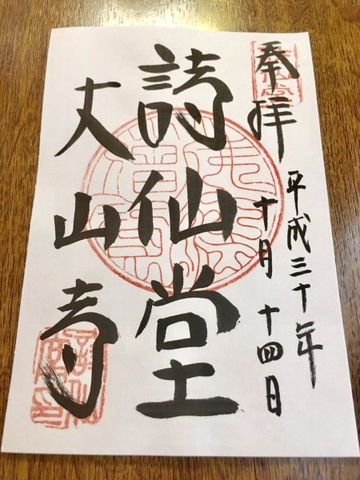 奉拝
平成三十年
十月十四日
詩仙堂
丈山寺